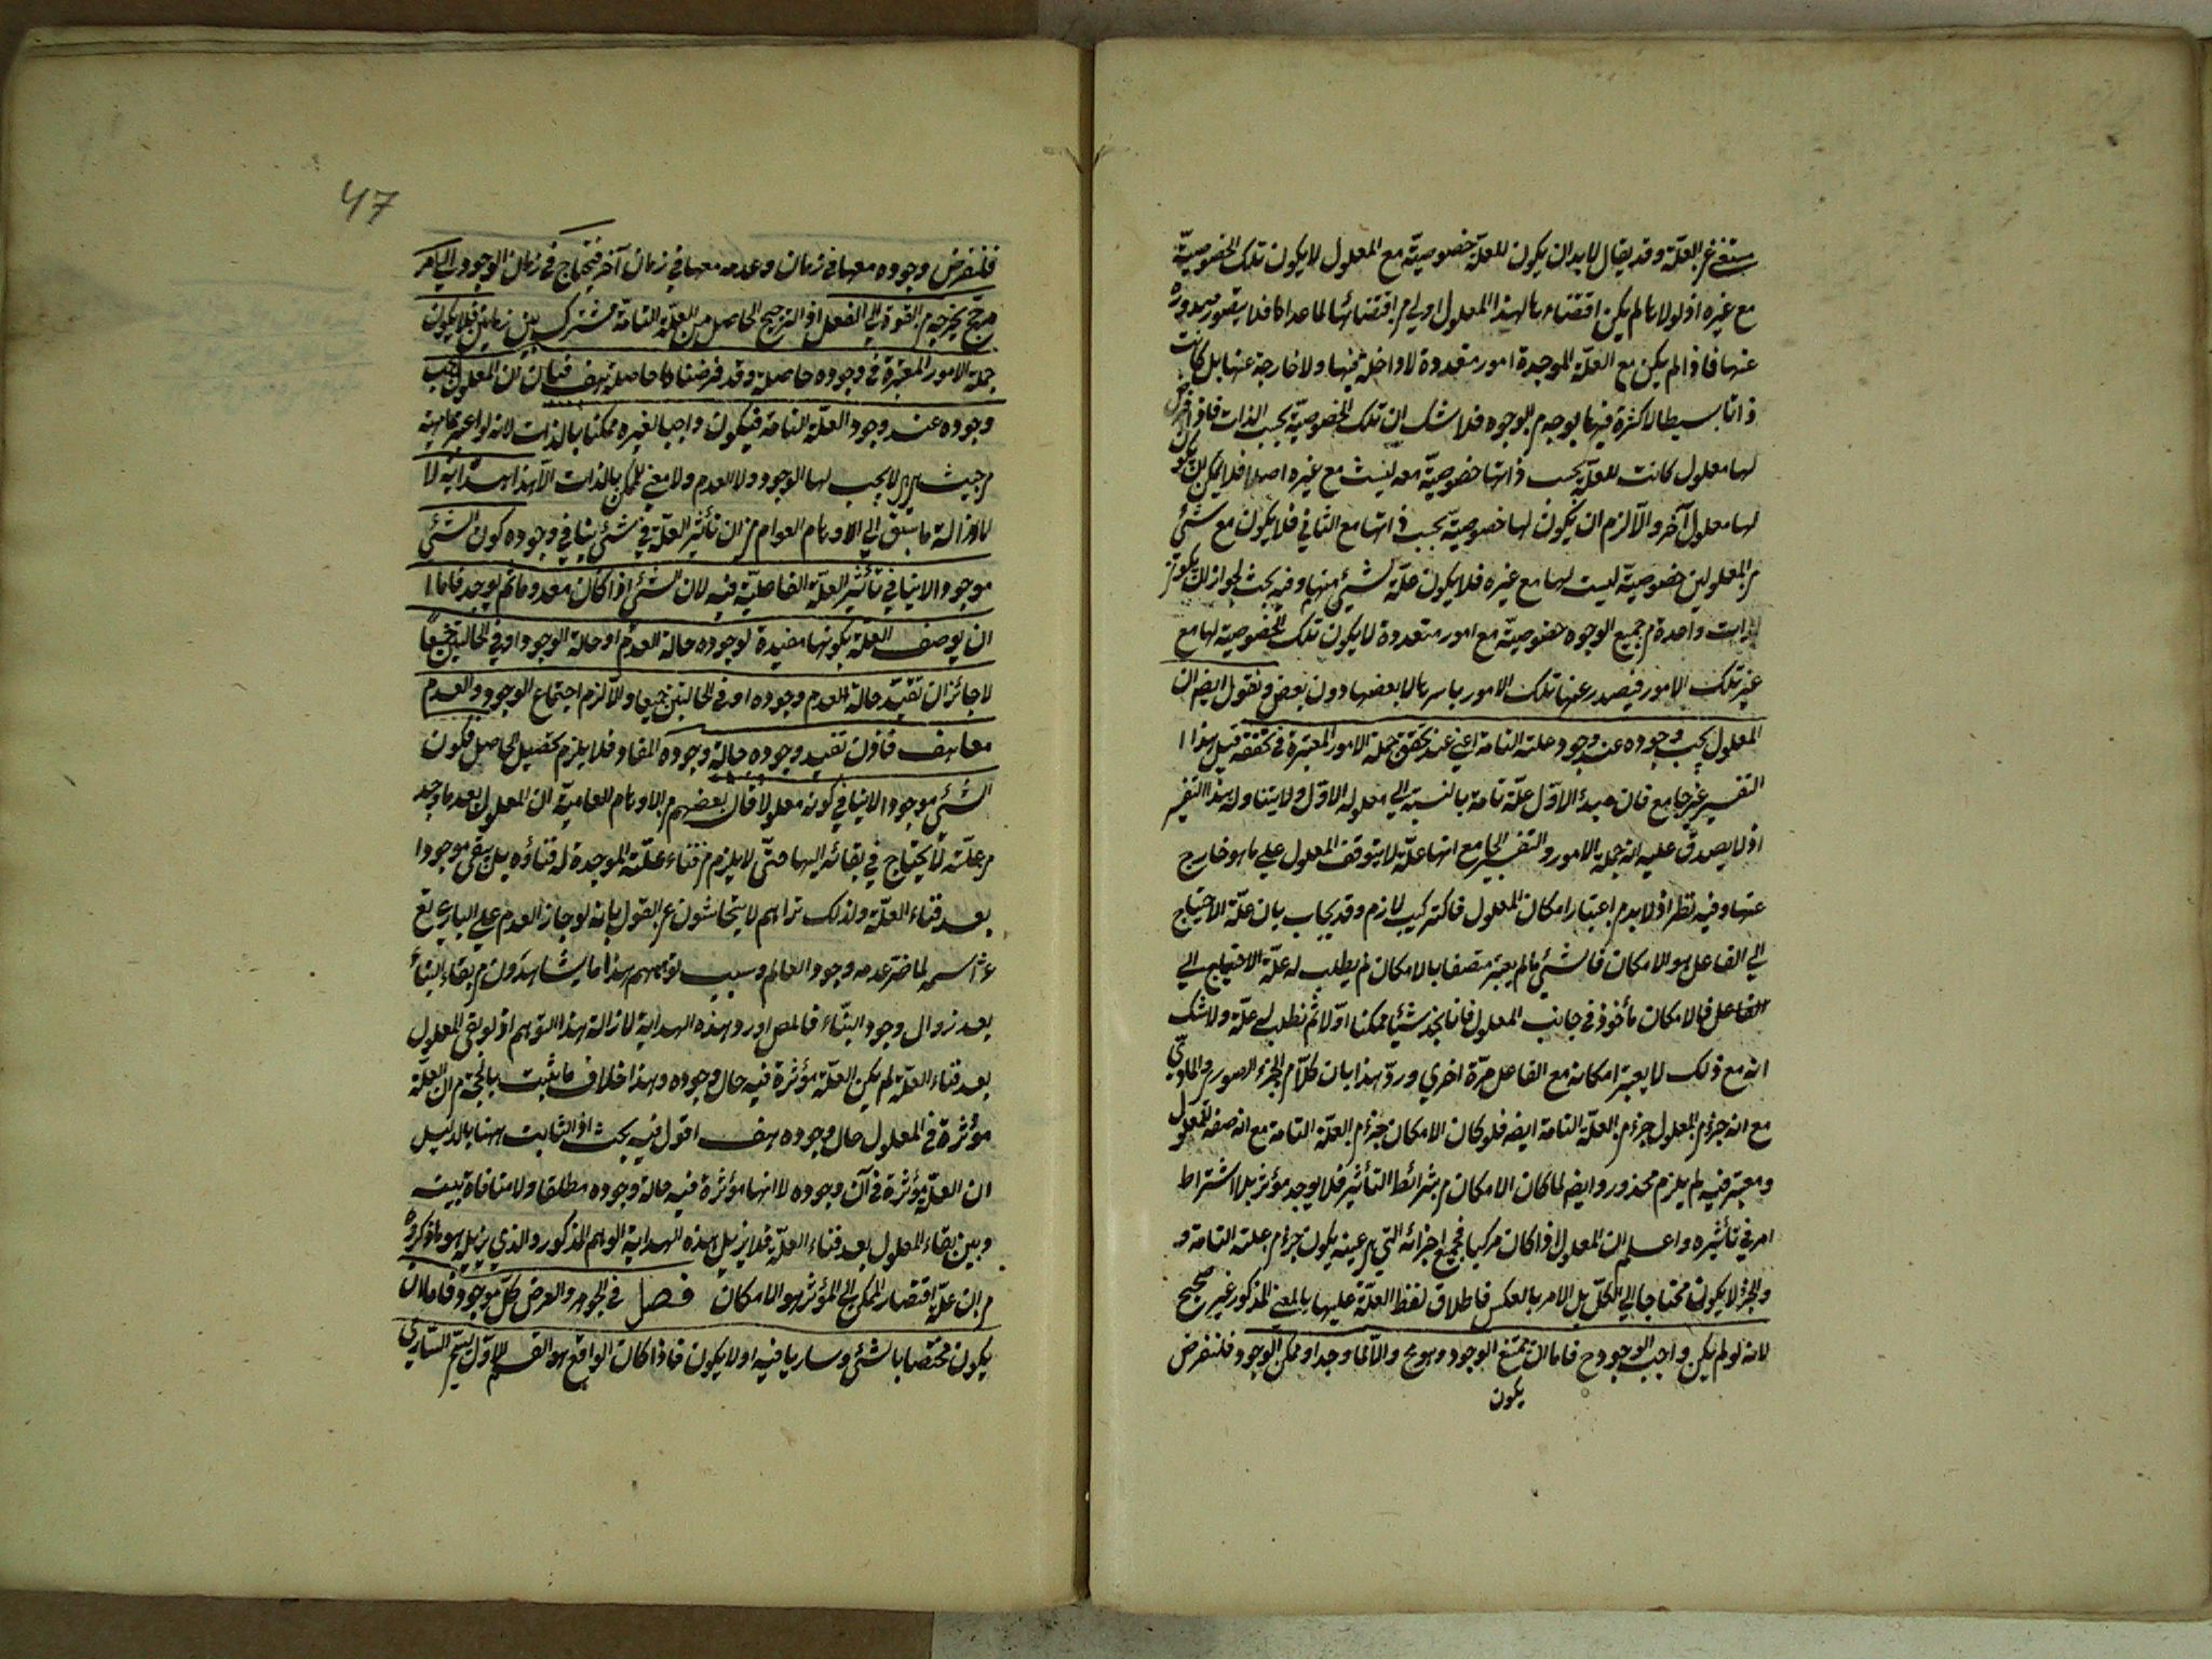 مستغن عن العلّة وقد يقال لابد ان يكون للعلّة خصوصيّة مع المعلول لا يكون تلك الخصوصيّة
مع غيره اذ لولاها لم يكن اقتضاءها لهذا المعلول اولي من اقتضائها لما عداه فلا يتصور صدوره
عنها فاذا لم يكن مع العلّة الموجدة امور متعددة لا داخلة فيها ولا خارجة عنها بل كانت
ذاتا بسيطا لا كثرة فيها بوجه من الوجوه فلا شك ان تلك الخصوصيّة بحسب الذات فاذا فرض
لها معلول كانت للعلّة بحسب ذاتها خصوصيّة معه ليست مع غيره اصلا فلا يمكن ان يكون
لها معلول آخر والّا لزم ان يكون لها خصوصيّة بحسب ذاتها مع الثاني فلا يكون مع شئ
من المعلولين خصوصيّة ليست لها مع غيره فلا يكون علّة لشئ منهما وفيه بحث لجواز ان يكون
لذات واحدة من جميع الوجوه خصوصيّة مع امور متعددة لا يكون تلك الخصوصيّة لها مع
غير تلك الامور فيصدر عنها تلك الامور باسرها لا بعضها دون بعض ونقول ايضا ان
المعلول يجب وجوده عند وجود علته التامة اعني عند تحقق جملة الامور المعتبرة في تحققه قيل هذا
التفسير غير جامع فان مبدء الاوّل علّة تامة بالنسبة الي معلوله الاوّل ولا يتناوله هذا التفسير
اذ لا يصدق عليه انه جملة الامور والتفسير الجامع انها علّة لا يتوقف المعلول علي ما هو خارج
عنها وفيه نظر اذ لابد من اعتبار امكان المعلول فالتركيب لازم وقد يجاب بان علّة الاحتياج
الي الفاعل هو الامكان فالشئ ما لم يعتبر متصفا بالامكان لم يطلب له علّة الاحتياج الي
الفاعل فالامكان مأخوذ في جانب المعلول فانا نجد شيئا ممكنا اوّلا ثم نطلب له علّة ولا شك
انه مع ذلك لا يعتبر امكانه مع الفاعل مرّة اخري وردّ هذا بان كلّا من الجزء الصوري والمادّي
مع انه جزء من المعلول جزء من العلّة التامة ايضا فلو كان الامكان جزء من العلّة التامة مع انه صفة للمعلول
ومعتبر فيه لم يلزم محذور وايضا لما كان الامكان من شرائط التأثير فلا يوجد مؤثر بلا اشتراط
امر في تأثيره واعلم ان المعلول اذا كان مركبا فجميع اجزائه التي هي عينه يكون جزء من علته التامة و
والجزء لا يكون محتاجا الي الكلّ بل الامر بالعكس فاطلاق لفظ العلّة عليها بالمعني المذكور غير صحيح
لانه لو لم يكن واجب الوجود ح فاما ان يكون ممتنع الوجود وهو مح والّا لما وجد او ممكن الوجود فلنفرض
47
فلنفرض وجوده معها في زمان وعدمه معها في زمان آخر فيحتاج في زمان الوجود الي امر
مرجّح يخرجه من القوة الي الفعل اذ الترجيح الحاصل من العلّة التامة مشترك بين زمانين فلا يكون
جملة الامور المعتبرة في وجوده حاصلة وقد فرضناها حاصلة هف فبان ان المعلول يجب
وجوده عند وجود العلّة التامة فيكون واجبا لغيره ممكنا بالذات لانه لو اعتبر ماهيته
من حيث هي هي لا يجب لها الوجود ولا العدم ولا معني للممكن بالذات الّا هذا هداية لا
لازالة ما سبق الي الاوهام العوام من ان تأثير العلّة في شئ ينافي وجوده كون الشئ
موجودا لا ينافي تأثير العلّة الفاعليّة فيه لان الشئ اذا كان معدوما ثم يوجد فاما
ان يوصف العلّة بكونها مفيدة لوجوده حالة العدم او حالة الوجود او في الحالتين جميعا
لا جائز ان تفيد حالة العدم وجوده او في الحالتين جميعا والّا لزم اجتماع الوجود والعدم
معا هف فاذن تفيد وجوده حالة وجوده المفاد فلا يلزم تحصيل الحاصل فكون
الشئ موجودا لا ينافي كونه معلولا قال بعضهم من الاوهام العاميّة ان المعلول بعد ما وجد
من علّته لا يحتاج في بقائه اليها حتّي لا يلزم من فناء علّته الموجدة له فناؤه بل يبقي موجودا
بعد فناء العلّة ولذلك تراهم لا يتحاشون عن القول بانه لو جاز العدم علي الباري تع
عن اسمه لما ضر عدمه وجود العالم وسبب توهمهم هذا ما يشاهدون من بقاء البناء
بعد زوال وجود البنّاء فالمص اورد هذه الهداية لازالة هذا التوهم اذ لو بقي المعلول
بعد فناء العلّة لم يكن العلّة مؤثرة فيه حال وجوده وهذا خلاف ما يثبت بالحجّة من ان العلّة
مؤثرة في المعلول حال وجوده هف اقول فيه بحث اذ الثابت هنا بالدليل
ان العلّة مؤثرة في آن وجوده لا انها مؤثرة فيه حالة وجوده مطلقا ولا منافاة بينه
وبين بقاء المعلول بعد فناء العلّة فلا يزيل هذه الهداية الوهم المذكور والذي يزيله هو ما ذكروه
من ان علّة افتقار الممكن الي المؤثر هو الامكان فصل في الجوهر والعرض كلّ موجود فاما ان
يكون مختصا بالشئ وساريا فيه او لا يكون فاذا كان الواقع هو القسم الاوّل يسمّي الساري
يكون